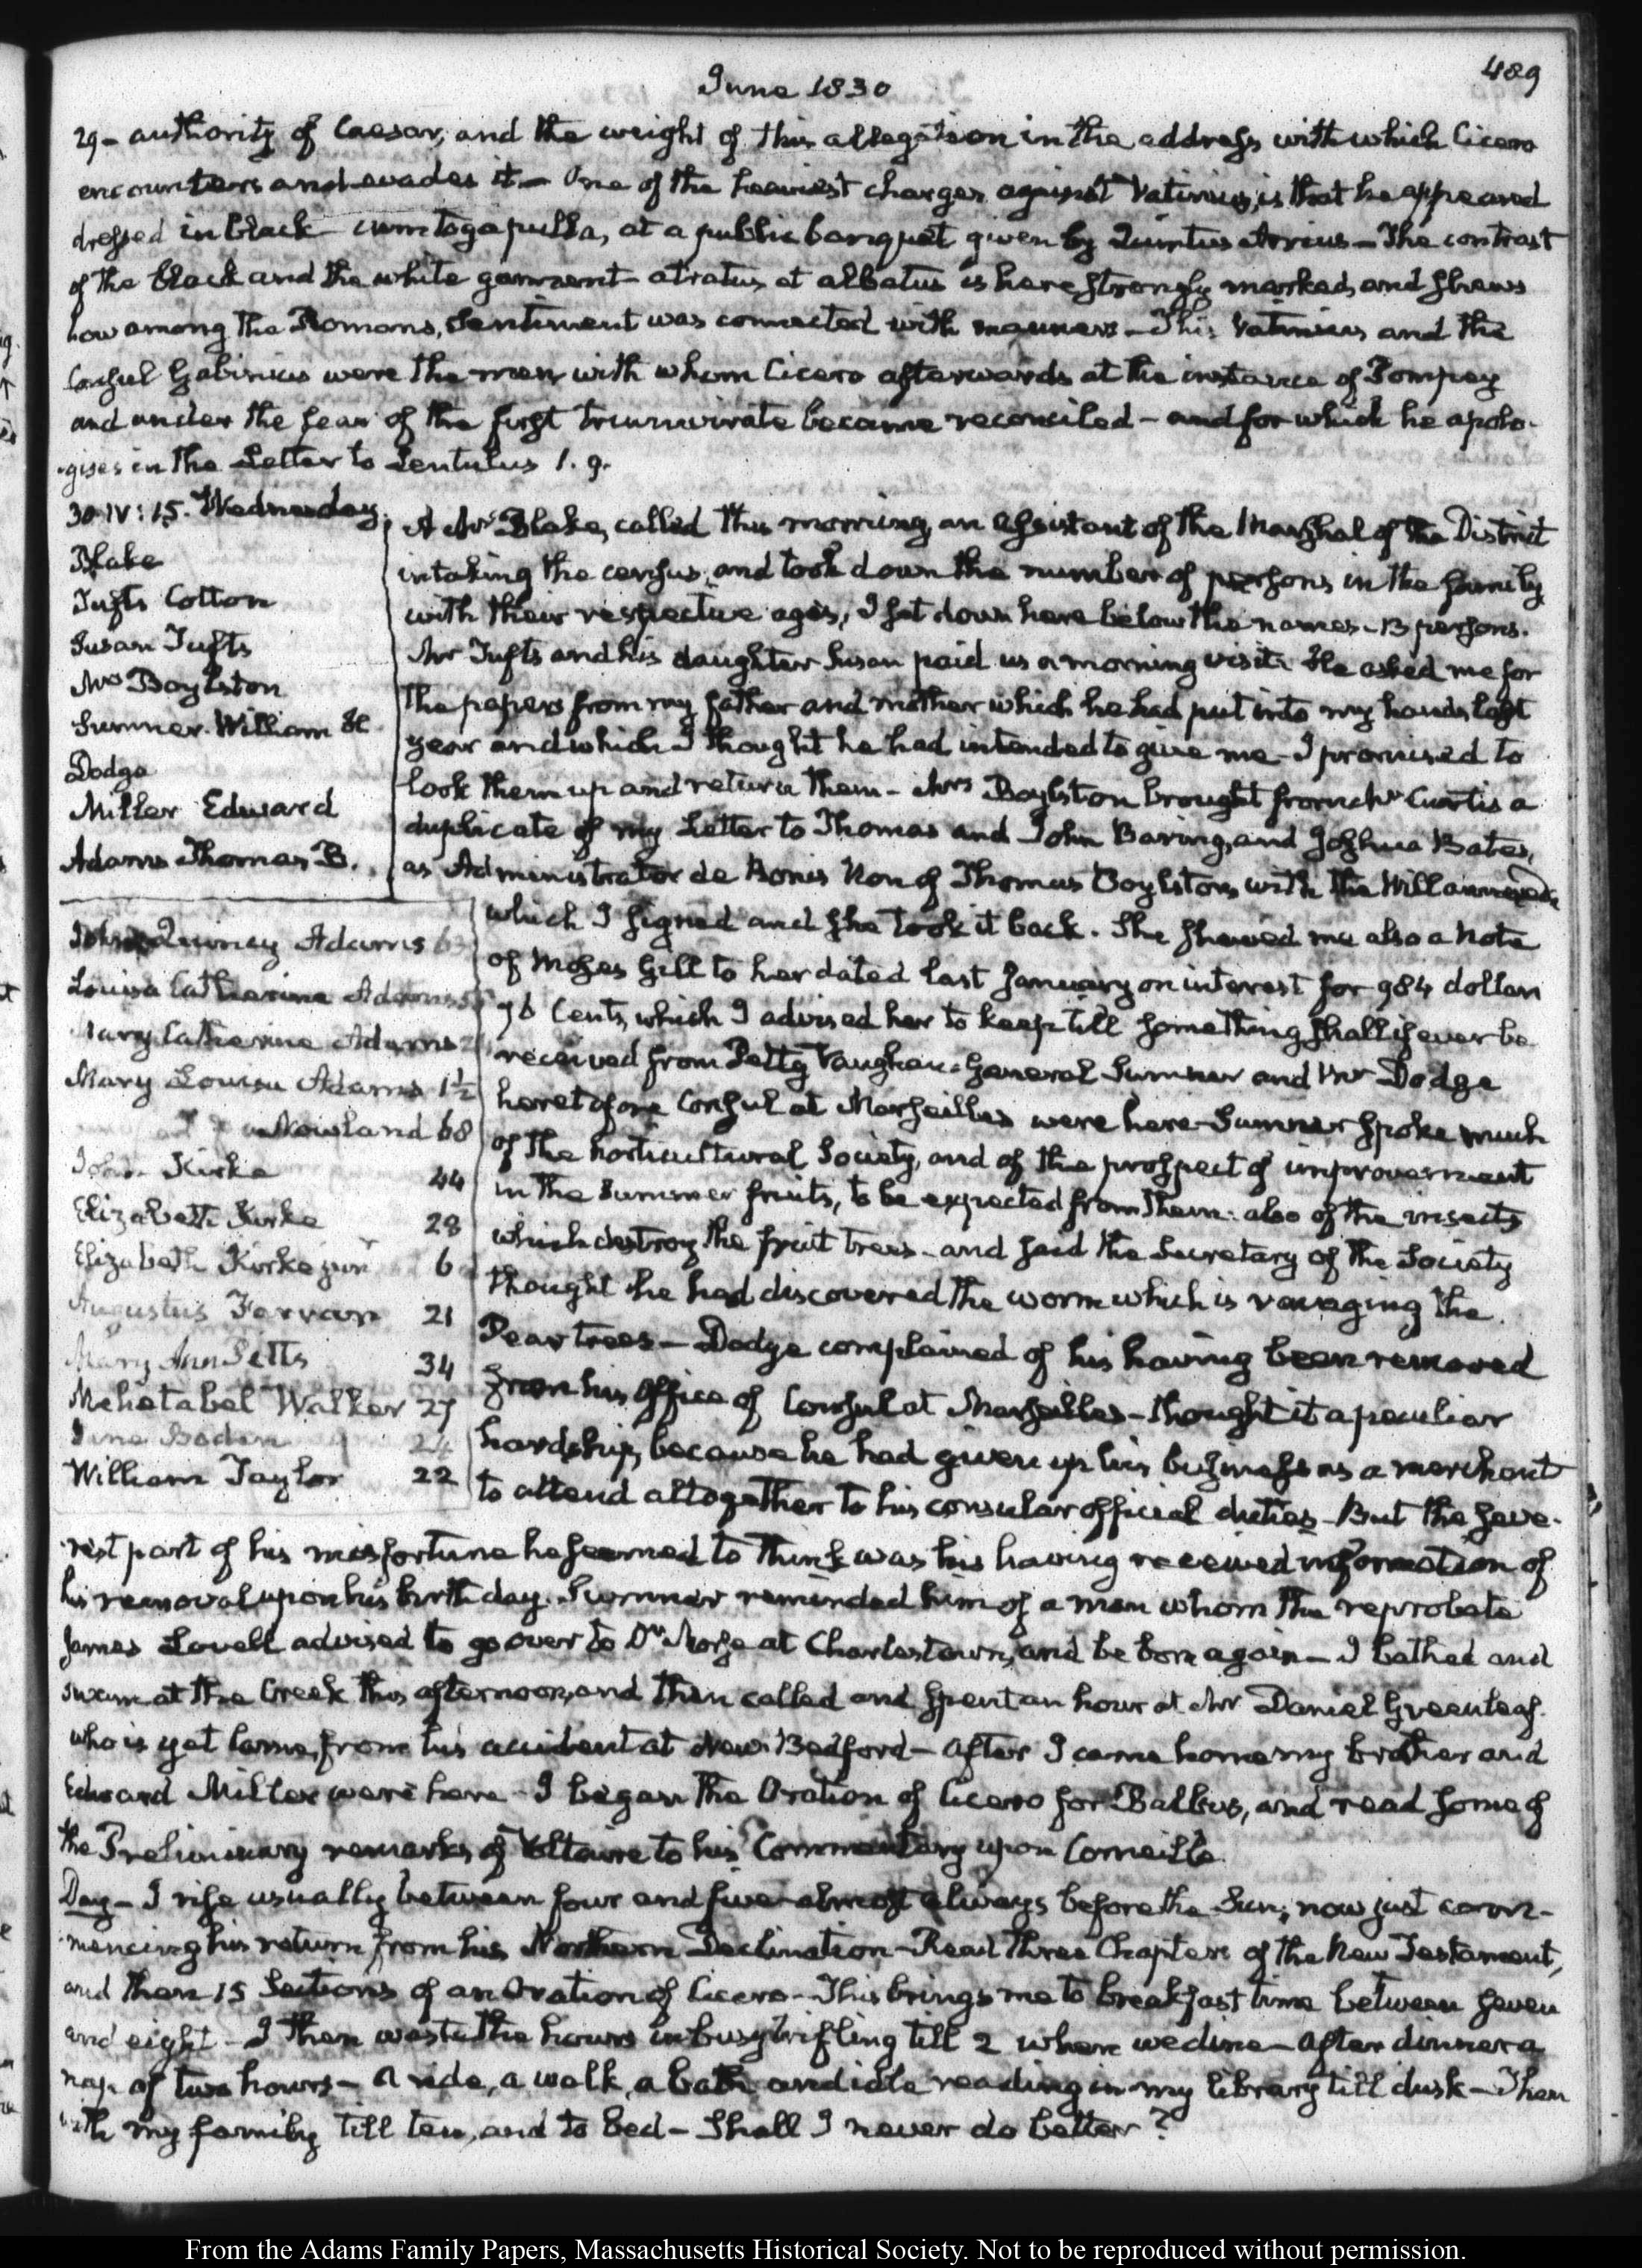 489
June 1830
29 - authority of Caesar, and the weight of this allegation in the address with which Cicero
encounters and evades it - One of the heaviest charges against Vatinius, is that he appeared
dressed in black - cum toga pulla, at a public banquet given by Quintus Arrius - The contrast
of the black and the white garment - atratus et albatus is here strongly marked, and shews
how among the Romans, Sentiment was connected with manners - This Vatinius and the
Consul Gabinius were the men with whom Cicero afterwards at the instance of Pompey
and under the fear of the first triumvirate became reconciled - and for which he apolo-
gises in the Letter to Lentulus 1. 9.
30. IV: 15. Wednesday.
Blake
Tufts Cotton
Susan Tufts
Mrs Boylston
Sumner. William H
Dodge
Miller Edward
Adams Thomas B.
A Mr Blake, called this morning, an Assistant of the Marshal of the District
in taking the census, and took down the number of persons in the family
with their respective ages, I set down here below the names - 13 persons.
Mr Tufts and his daughter Susan paid us a morning visit. He asked me for
the papers from my father and mother which he had put into my hands last
year and which I thought he had intended to give me - I promised to
look them up and return them - Mrs Boylston brought from Mr Curtis a
duplicate of my Letter to Thomas and John Baring, and Joshua Bates,
as Administrator de Bonis Non of Thomas Boylston, with the Will annexed
John Quincy Adams 63
Louisa Catherine Adams 55
Mary Catherine Adams
Mary Louisa Adams 1½
Nowland 68
John Kirke 44
Elizabeth Kirke 28
Elizabeth Kirke junr 6
Augustus Farrar 21
Mary Ann Pitts 34
Mehetabel Walker 27
24
William Taylor 22
which I signed and she took it back. She shewed me also a Note
of Moses Gill to her dated last January on interest for 984 dollars
96 Cents, which I advised her to keep till something shall if ever be
received from Petty Vaughan. General Sumner and Mr Dodge
heretofore Consul at Marseilles were here - Sumner spoke much
of the horticultural Society, and of the prospect of improvement
in the Summer fruits, to be expected from them: also of the insects
which destroy the fruit trees - and said the Secretary of the Society
thought he had discovered the worm which is ravaging the
Pear trees - Dodge complained of his having been removed
from his Office of Consul at Marseilles - thought it a peculiar
hardship, because he had given up his business as a merchant
to attend altogether to his consular official duties - But the seve-
rest part of his misfortune he seemed to think was his having received information of
his removal upon his birth day. Sumner reminded him of a man whom the reprobate
James Lovell advised to go over to Dr Morse at Charlestown, and be born again - I bathed and
swam at the Creek this afternoon, and then called and spent an hour at Mr Daniel Greenleaf.
who is yet lame, from his accident at New-Bedford - After I came home my brother and
Edward Miller were here - I began the Oration of Cicero for Balbus, and read some of
the Preliminary remarks of Voltaire to his Commentary upon Corneille.
Day - I rise usually between four and five - almost always before the Sun; now just com-
mencing his return from his Northern Declination - Read three Chapters of the New Testament,
and then 15 Sections of an Oration of Cicero - This brings me to breakfast time between seven
and eight - I then waste the hours in busy trifling till 2 when we dine - after dinner a
nap of two hours - A ride, a walk, a bath and idle reading in my library till dusk - Then
with my family till ten, and to bed - Shall I never do better?
From the Adams Family Papers, Massachusetts Historical Society. Not to be reproduced without permission.